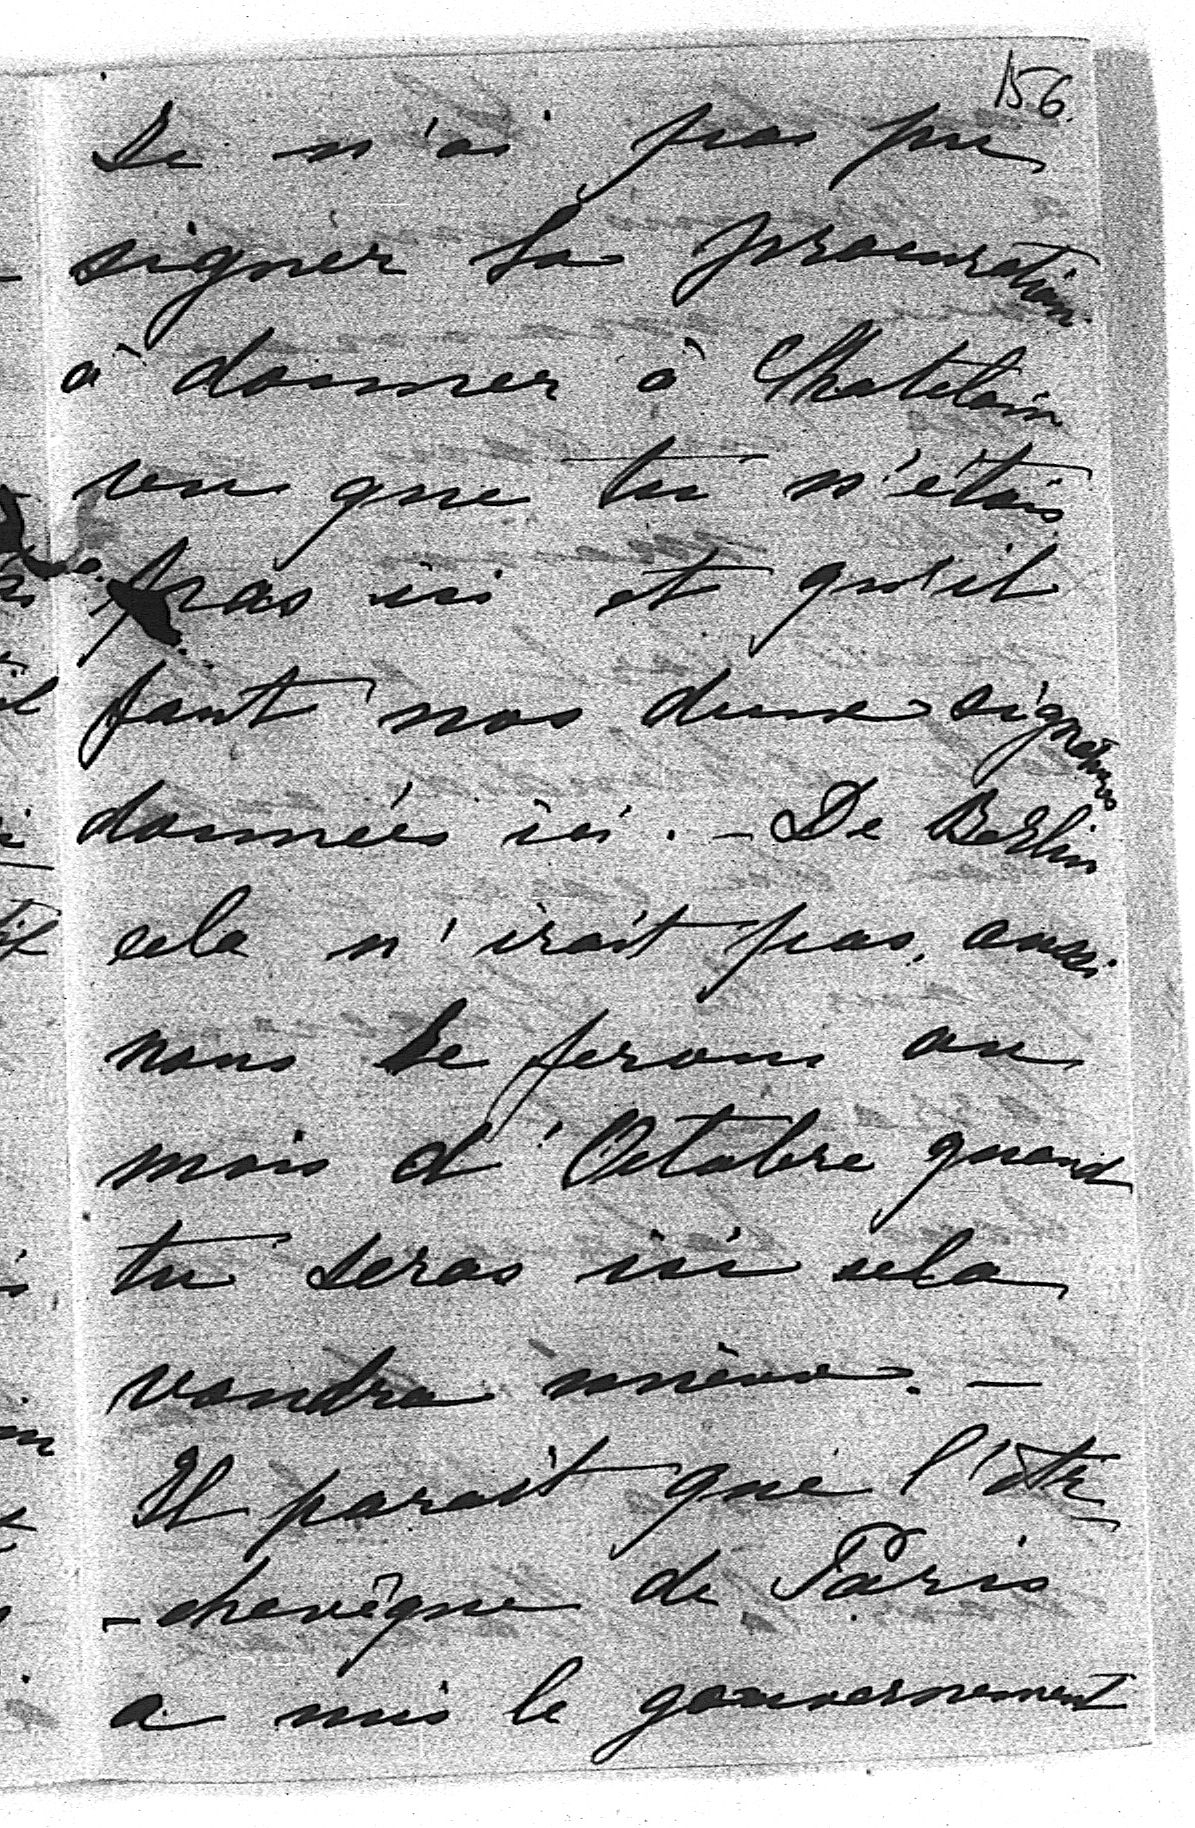 156
Je n'ai pas pu
signer la procuration
à donner à Chatelain
vu que tu n'étais
pas ici et qu'il
faut nos deux signatures
données ici. - De Berlin
cela n'irait pas, aussi
nous le ferons au
mois d'Octobre quand
tu seras ici cela
vaudra mieux. -
Il parait que l'Ar
-chevêque de Paris
a mis le gouvernement